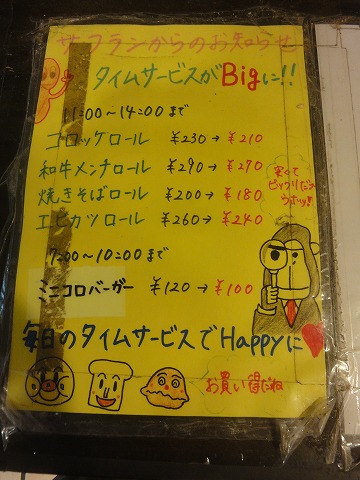 サフランからのお知らせ
タイムサービスがBigに!!
11:00～14:00まで
コロッケロール ¥230→¥210
和牛メンチロール ¥290→¥270
焼きそばロール ¥200→¥180
エビカツロール ¥260→¥240
7:00～10:00まで
ミニコロバーガー ¥120→¥100
毎日のタイムサービスでHappyに
お買い得だね